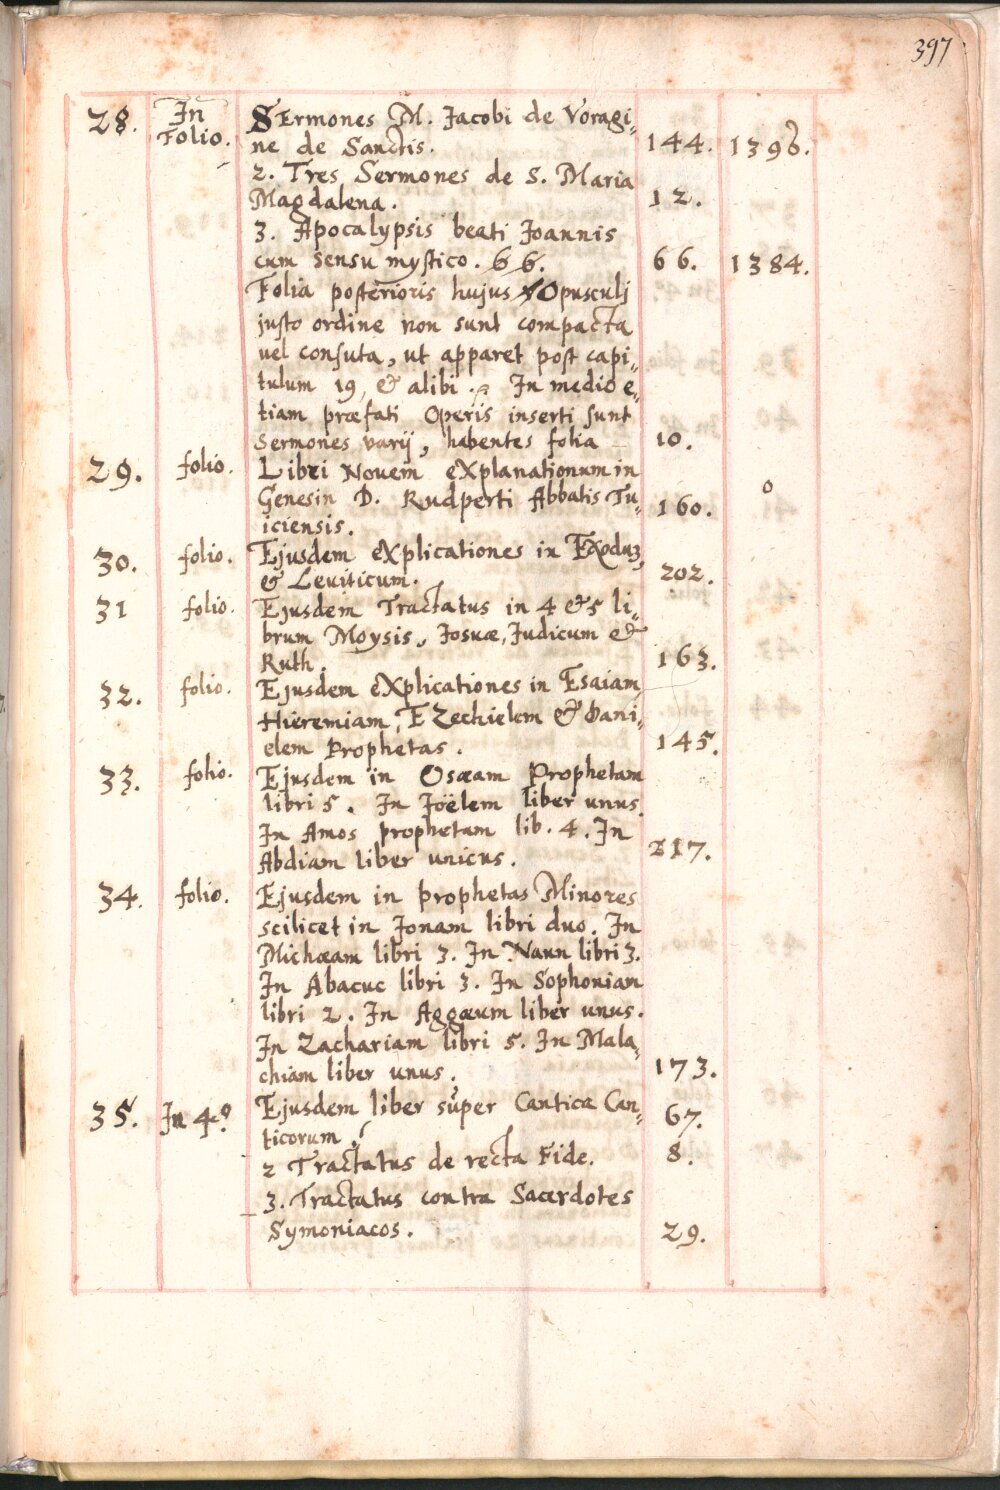 397
28. In Folio. SErmones M. Jacobi de Voragi„
ne de Sanctis. 144. 1398.
2. Tres Sermones de S. Maria
Magdalena. 12.
3. Apocalypsis beati Joannis
cum sensu mystico. 66. 66. 1384.
Folia posterioris hujus Opusculj
justo ordine non sunt compacta
vel consuta, ut apparet post capi„
tulum 19, & alibi. In medio e„
tiam præfati Operis inserti sunt
Sermones varij, habentes folia 10.
29. folio. Libri Novem eXplanationum in
Genesin D. Rudperti Abbatis Tu„ 160. 0
iciensis.
30. folio. Ejusdem eXplicationes in Exodum,
& Leviticum. 202.
31 folio. Ejusdem Tractatus in 4 & 5 li„
brum Moysis, Josuæ, Judicum &
Ruth. 163.
32. folio. Ejusdem eXplicationes in Esaiam,
Hieremiam, EZechielem & Dani„
elem Prophetas. 145.
33. folio. Ejusdem in Osæam Prophetam
libri 5. In Joëlem liber unus.
In Amos prophetam lib. 4. In
Abdiam liber unicus. 217.
34. folio. Ejusdem in prophetas Minores
scilicet in Jonam libri duo. In
Michæam libri 3. In Naun libri 3.
In Abacuc libri 3. In Sophoniam
libri 2. In Aggæum liber unus.
In Zachariam libri 5. In Mala„
chiam liber unus. 173.
35. In 4º. Ejusdem liber super Cantica Can„ 67.
ticorum.
2 Tractatus de recta Fide. 8.
3. Tractatus contra Sacerdotes
Symoniacos. 29.